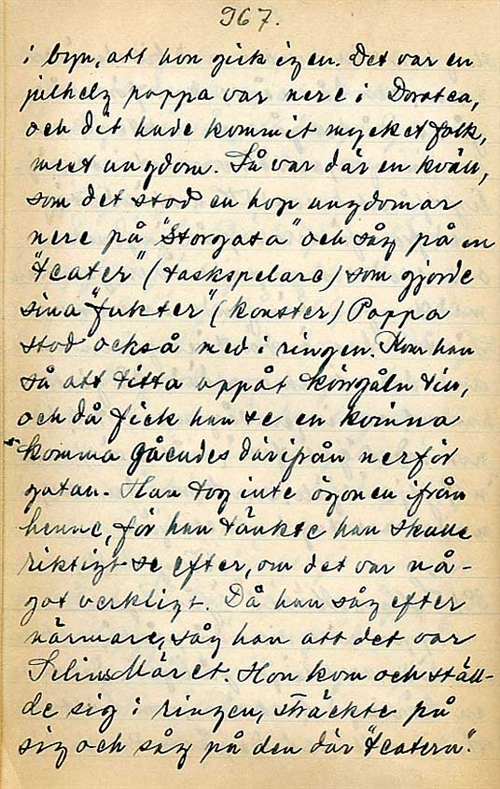 967.
i byn, att hon gick igen. Det var en
julhelg pappa var nere i Dorotea,
och dit hade kommit mycket folk,
mest ungdom. Så var där en kväll,
som det stod en hop ungdomar
nere på "Storgata" och såg på en
"teater" (taskspelare) som gjorde
sina "fukter" (konster) Pappa
stod också med i ringen. Kom han
så att titta uppåt
och då fick han se en kvinna
komma gåendes därifrån nerför
gatan. Han tog inte ögonen ifrån
henne, för han tänkte han skulle
riktigt se efter, om det var nå-
got verkligt. Då han såg efter
närmare, såg han att det var
Selins Märet. Hon kom och ställ-
de sig i ringen, sträckte på
sig och såg på den där "teatern".